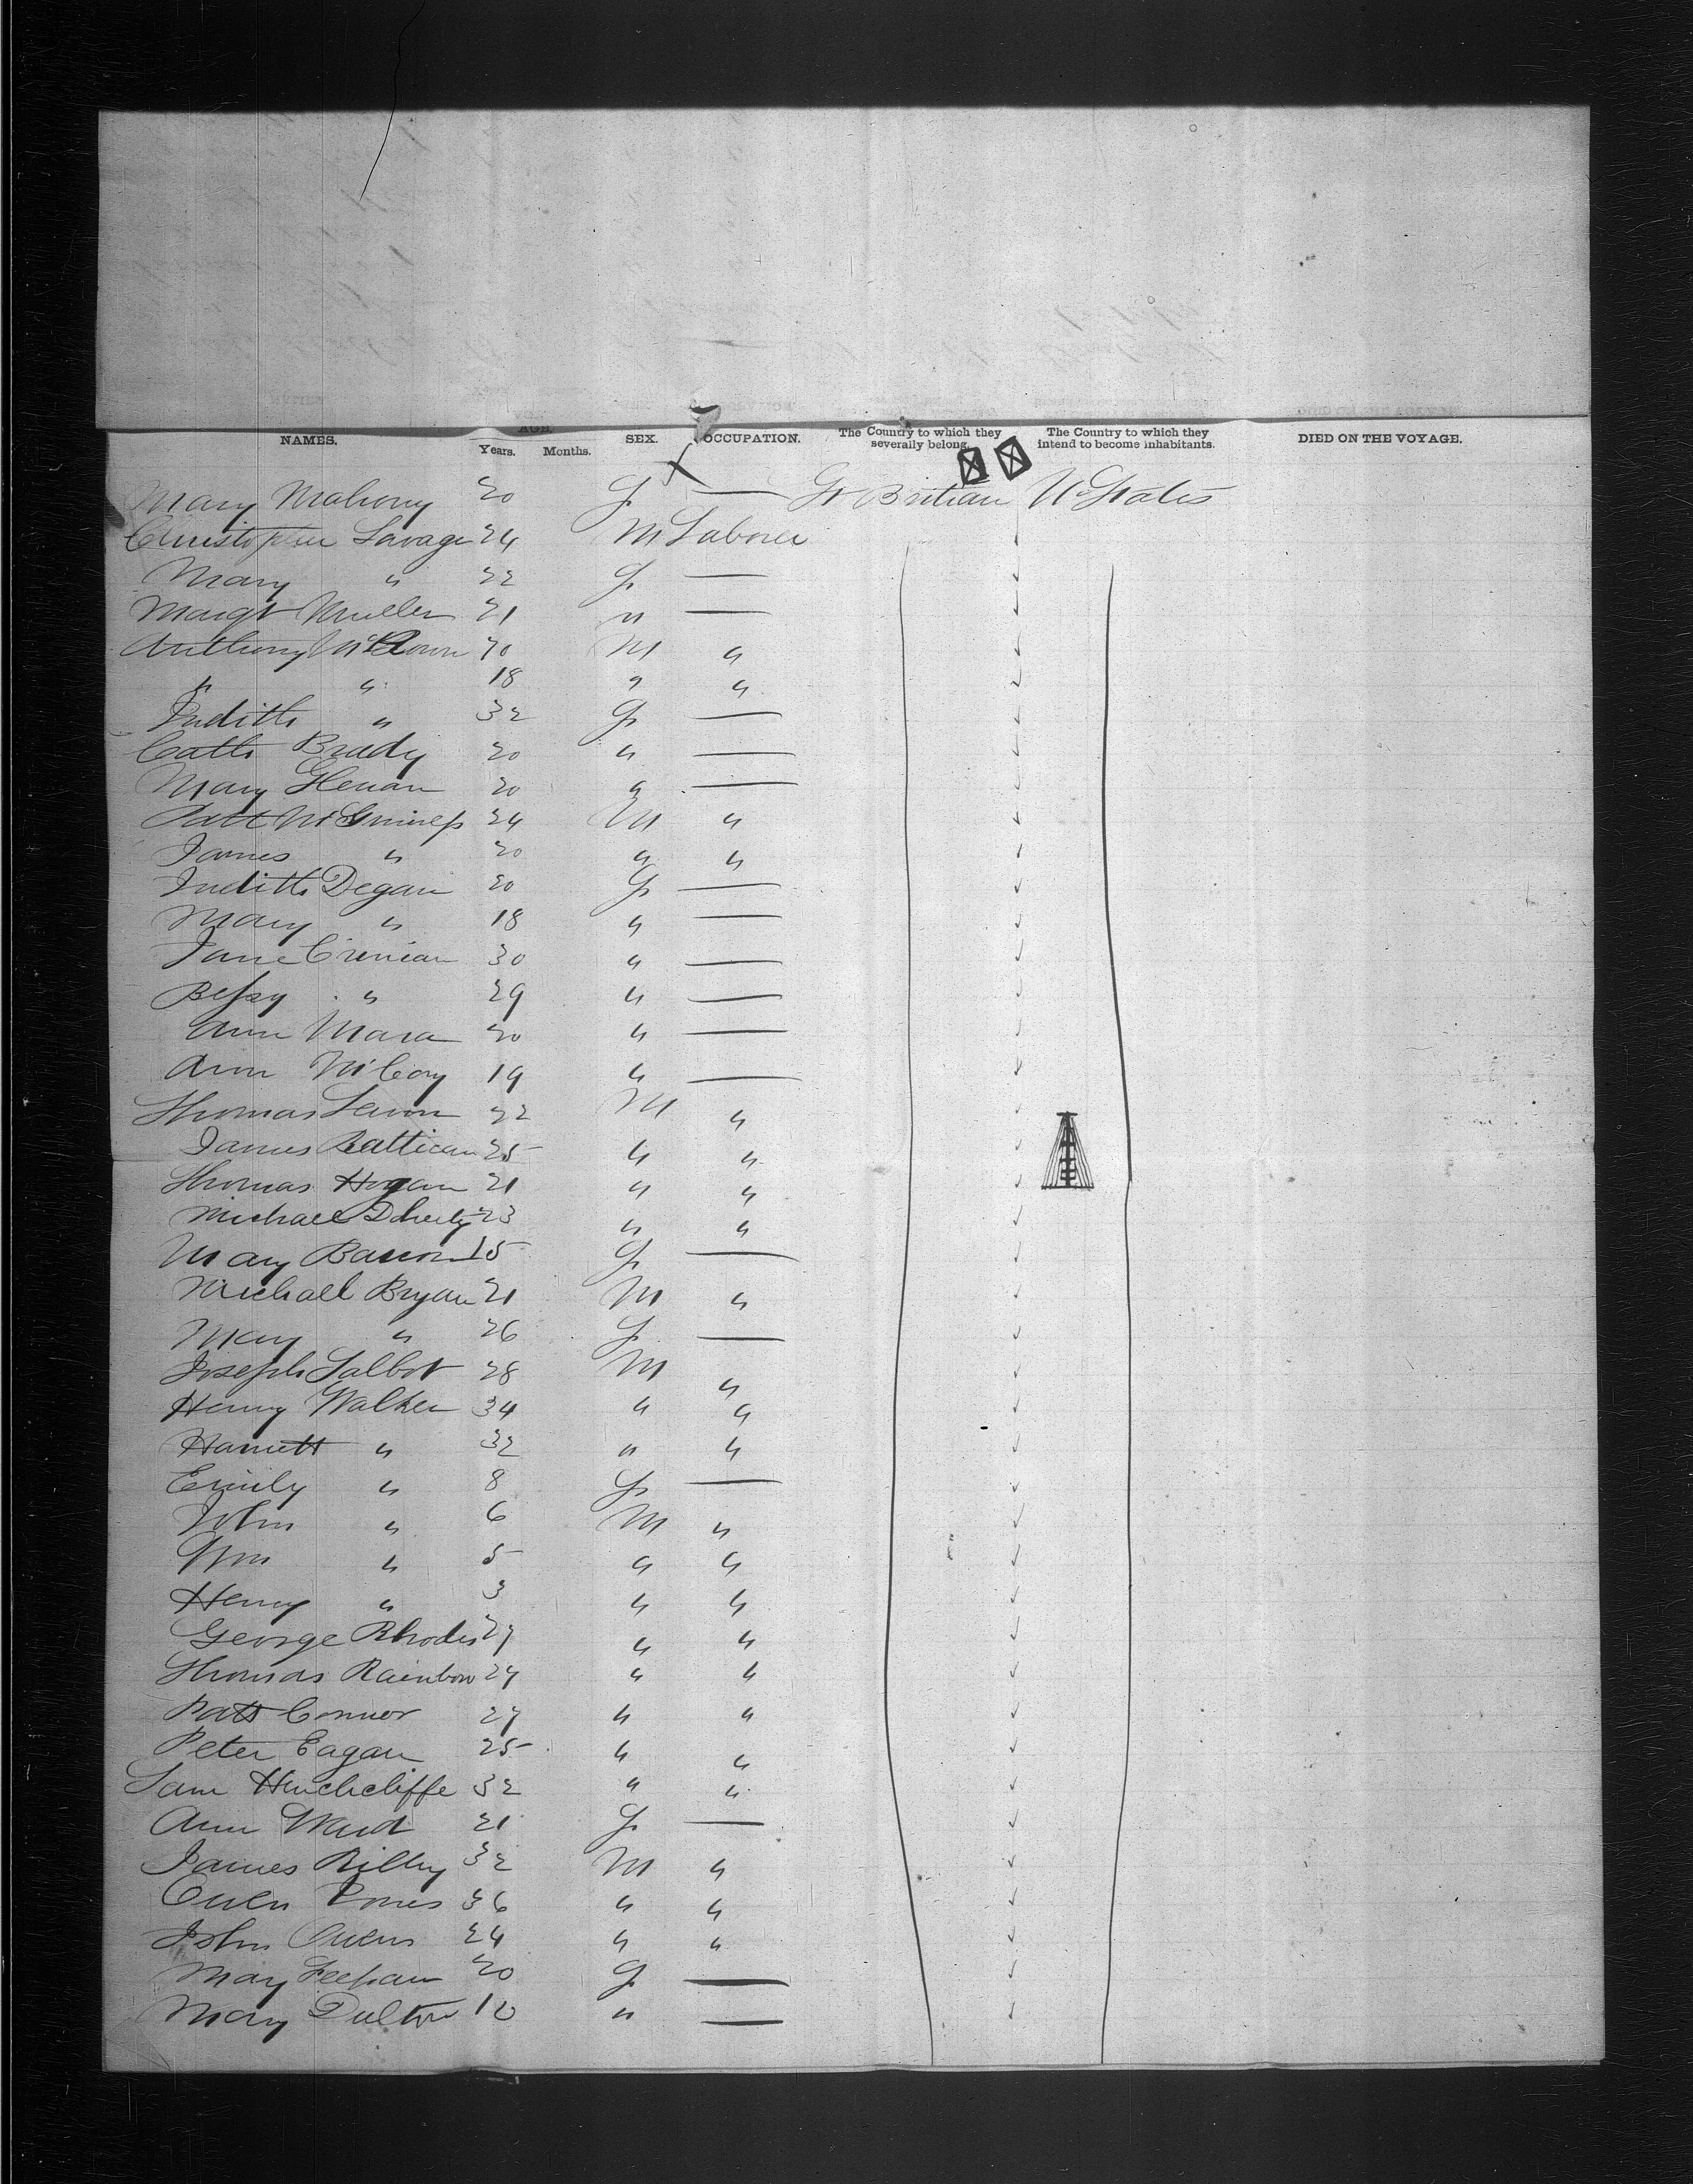 NAMES. AGE. Years. Months. SEX. OCCUPATION. The Country to which they severally belong. The Country to which they intend to become inhabitants. DIED ON THE VOYAGE.
Mary Mahony 20 F — Gt Britian U States
Christopher Savage 24 M Laborer
Mary " 22 F —
Margt Muller 21 " —
Anthony 70 M "
" " 18 " "
Judith " 32 F —
Cath Brady 20 " —
Mary 20 " —
Patt McGuiness 24 M "
James " 20 " "
Judith Degan 20 F —
Mary " 18 " —
Jane 30 " —
Bessy " 29 " —
Ann Mara 20 " —
Ann McCoy 19 " —
Thomas 22 M "
James 25 " "
Thomas Hogan 21 " "
Michael Doherty 23 " "
Mary 15 F —
Michael Bryan 21 M "
Mary " 26 F —
Joseph Talbot 28 M "
Henry Walker 34 " "
Harriett " 32 " "
Emily " 8 F —
John " 6 M "
Wm " 5 " "
Henry " 3 " "
George Rhodes 27 " "
Thomas Rainbow 24 " "
Patt Connor 27 " "
Peter Eagan 25 " "
Sam Hinchcliffe 32 " "
Ann Ward 21 F —
James Rilley 32 M "
Owen Jones 36 " "
John Owens 24 " "
Mary 20 F —
Mary Dulton 10 " —